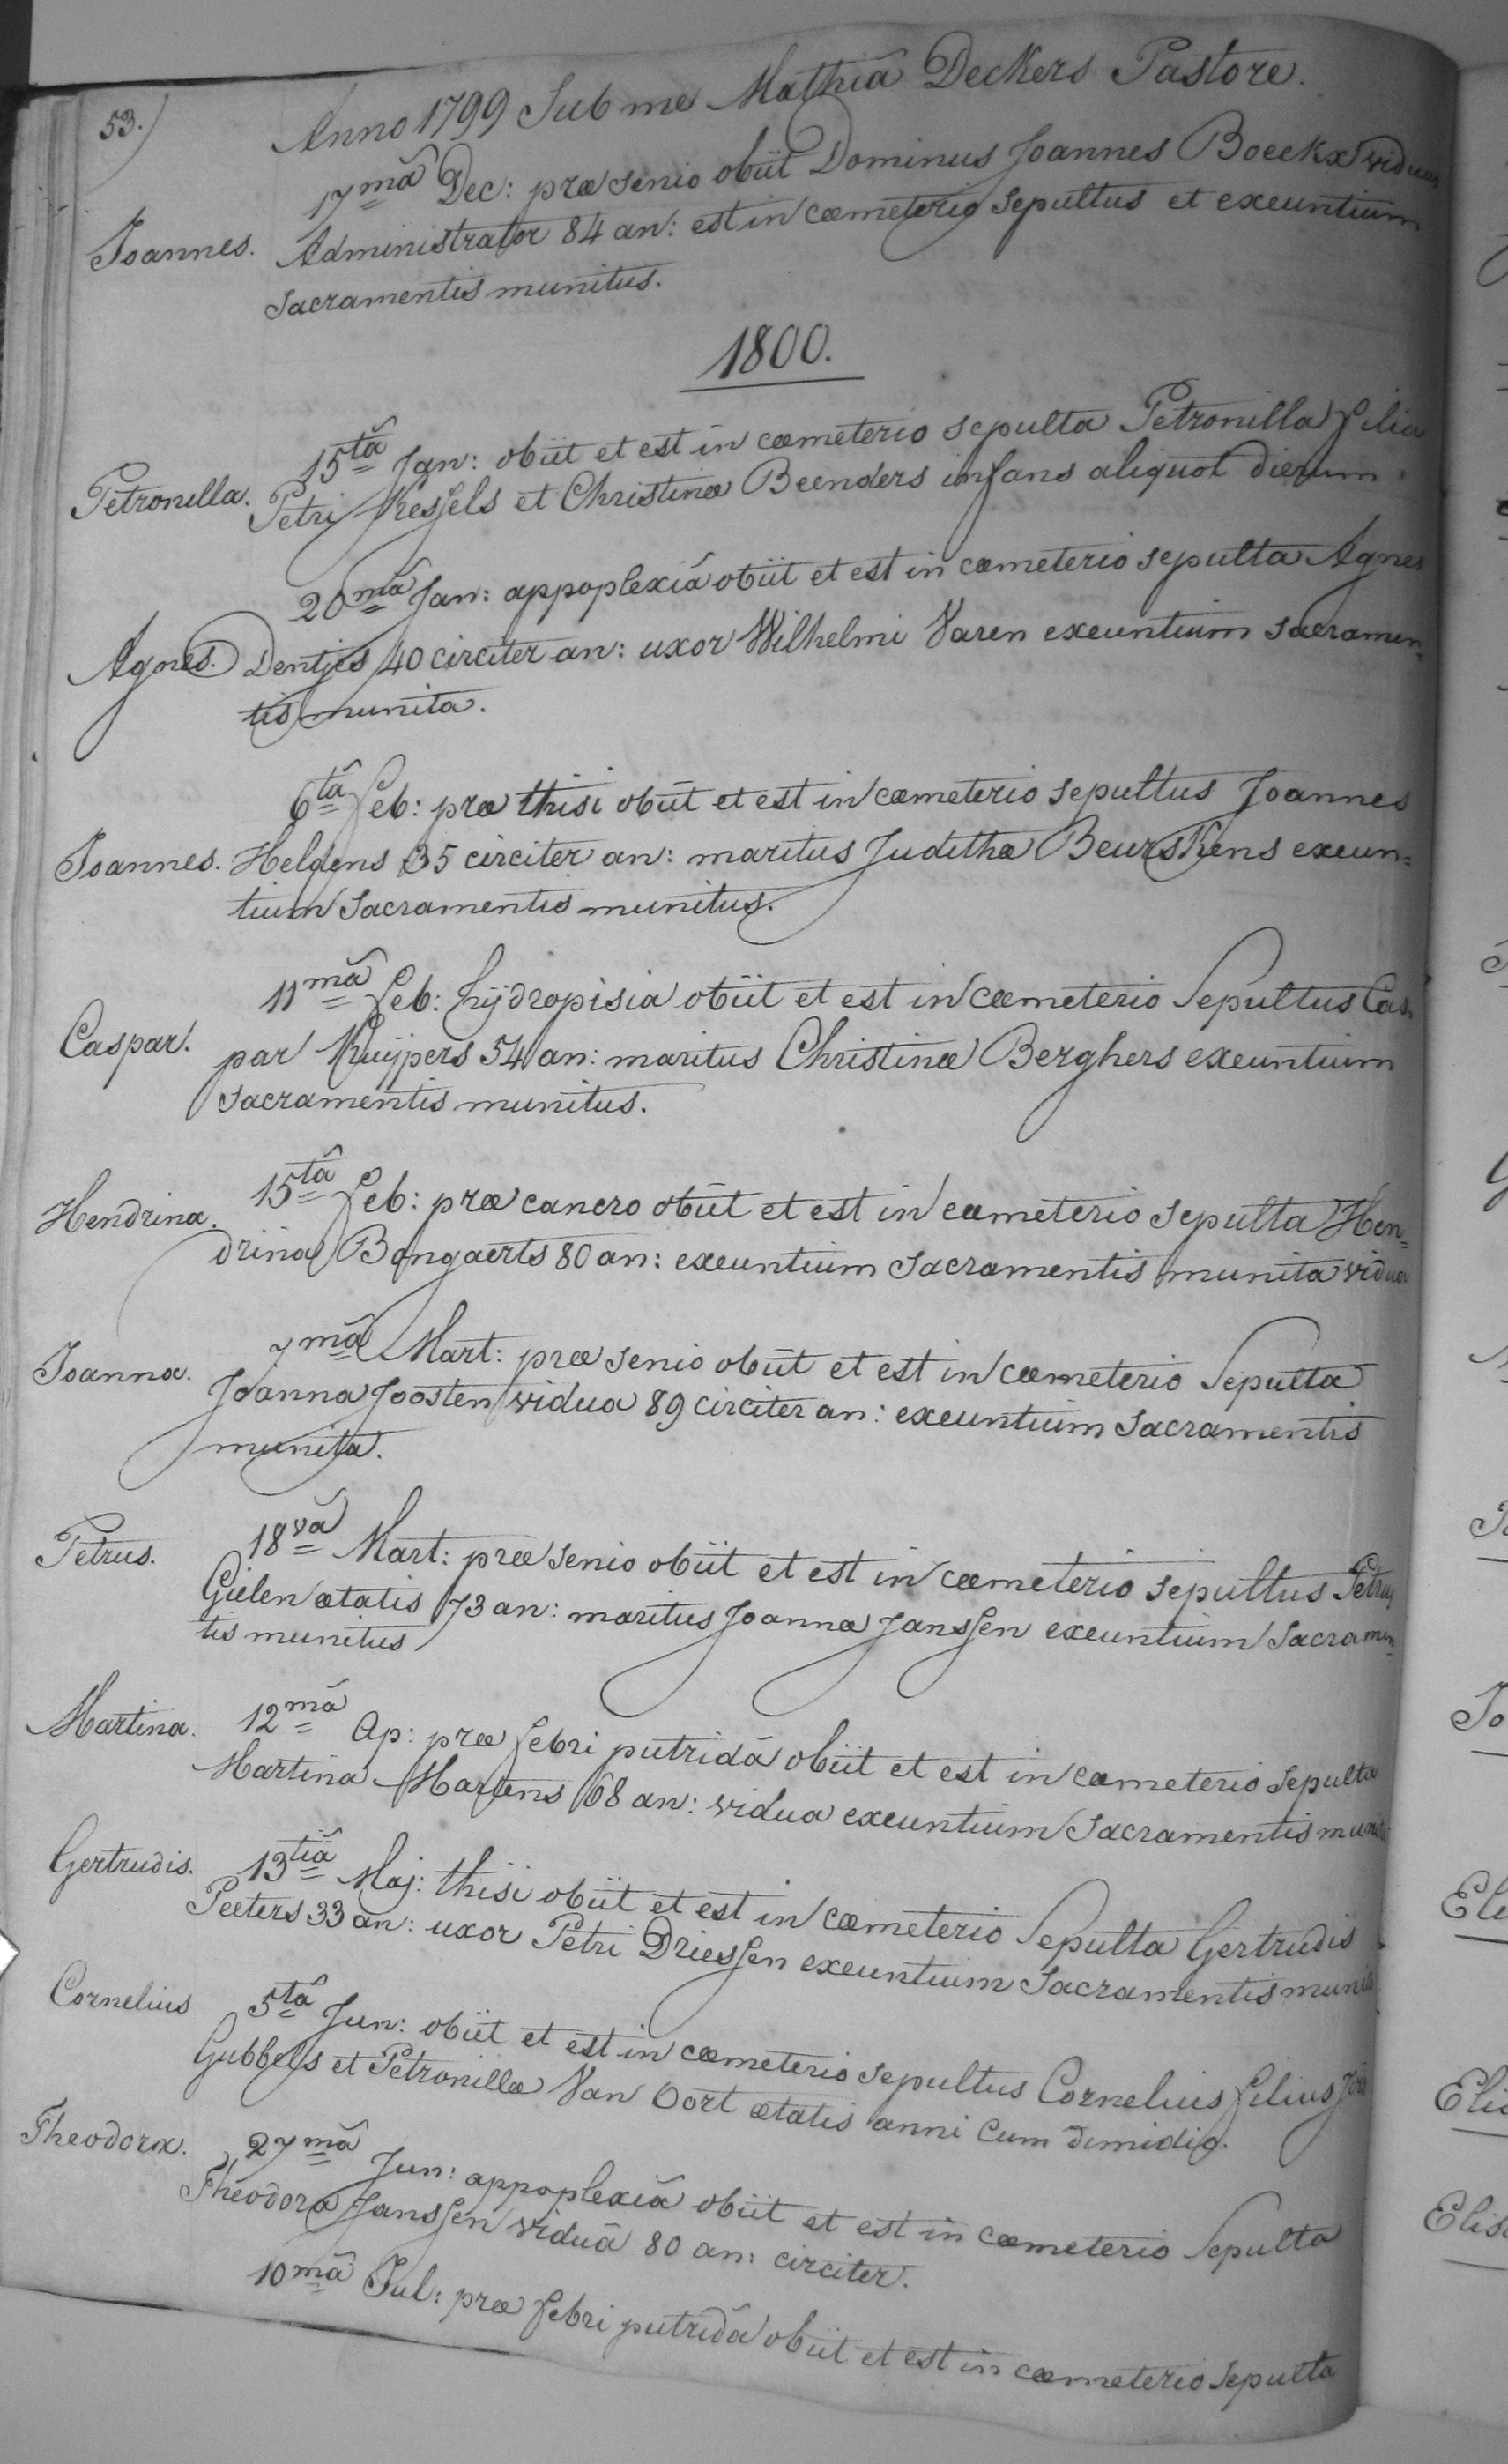 53.) Anno 1799 Sub me Mathiâ Deckers Pastore.
17mâ Dec: præ senio obiit Dominus Joannes Boeckx viduus
Joannes. Administrator 84 an: est in cœmeterio sepultus et exeuntium
Sacramentis munitus.
1800.
15tâ Jan: obiit et est in cœmeterio sepulta Petronilla filia
Petronilla. Petri Kessels et Christinæ Beenders infans aliquot dierum.
20mâ Jan: appoplexiâ obiit et est in cœmeterio sepulta Agnes
Agnes. Dentjes 40 circiter an: uxor Wilhelmi Varen exeuntium sacramen=
tis munita.
6tâ feb: præ thisi obiit et est in cœmeterio sepultus Joannes
Joannes. Heldens 35 circiter an: maritus Judithæ Beurskens exeun=
tium Sacramentis munitus.
11mâ feb: hijdropisia obiit et est in cœmeterio Sepultus Cas=
Caspar. par Kuijpers 54 an: maritus Christinæ Berghers exeuntium
Sacramentis munitus.
15tâ feb: præ cancro obiit et est in cœmeterio sepulta Hen=
Hendrina. drina Bongaerts 80 an: exeuntium Sacramentis munita vidua
7mâ Mart: præ senio obiit et est in cœmeterio Sepulta
Joanna. Joanna Joosten vidua 89 circiter an: exeuntium Sacramentis
munita.
18vâ Mart: præ senio obiit et est in cœmeterio sepultus Petrus
Petrus. Gielen ætatis 73 an: maritus Joannæ Janssen exeuntium Sacramen=
tis munitus
12mâ Ap: præ febri putridâ obiit et est in cœmeterio Sepulta
Martina. Martina Martens 68 an: vidua exeuntium Sacramentis munita
13tiâ Maj: thisi obiit et est in cœmeterio Sepulta Gertrudis
Gertrudis. Peeters 33 an: uxor Petri Driessen exeuntium Sacramentis munita
Cornelius 5tâ Jun: obiit et est in cœmeterio sepultus Cornelius filius
Gubbels et Petronillæ Van Oort ætatis anni cum dimidio.
Theodora. 27mâ Jun: appoplexiâ obiit et est in cœmeterio Sepulta
Theodora Janssen viduâ 80 an: circiter.
10mâ Jul: præ febri putridâ obiit et est in cœmeterio Sepulta